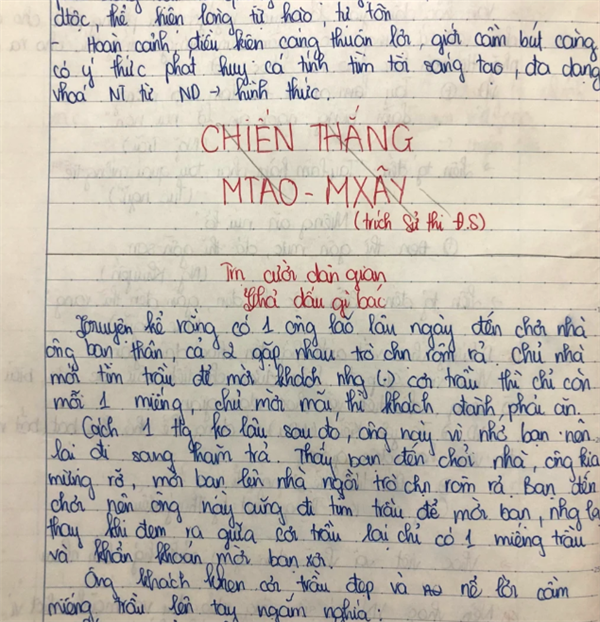 dtộc, thể hiện lòng tự hào, tự tôn
- Hoàn cảnh, điều kiện càng thuận lợi, giới cầm bút càng
có ý thức phát huy cá tính tìm tòi sáng tạo, đa dạng
hoá NT từ ND → hình thức.
CHIẾN THẮNG
MTAO - MXÂY
(trích Sử thi Đ.S)
Tr cười dân gian
Nhả dấu gì bác
Truyện kể rằng có 1 ông lão lâu ngày đến chơi nhà
ông bạn thân, cả 2 gặp nhau trò chn rôm rả. Chủ nhà
mới tìm trầu để mời khách nhg (.) cơi trầu thì chỉ còn
mỗi 1 miếng, chủ mời mãi, thì khách đành phải ăn.
Cách 1 tg ko lâu sau đó, ông này vì nhớ bạn nên
lại đi sang thăm trả. Thấy bạn đến chơi nhà, ông kia
mừng rỡ, mời bạn lên nhà ngồi trò chn rôm rả. Bạn đến
chơi nên ông này cũng đi tìm trầu để mời bạn, nhg lạ
thay khi đem ra giữa cơi trầu lại chỉ có 1 miếng trầu
và khẩn khoản mời bạn xơi.
Ông khách khen cơi trầu đẹp và nể lời cầm
miếng trầu lên tay ngắm nghía: